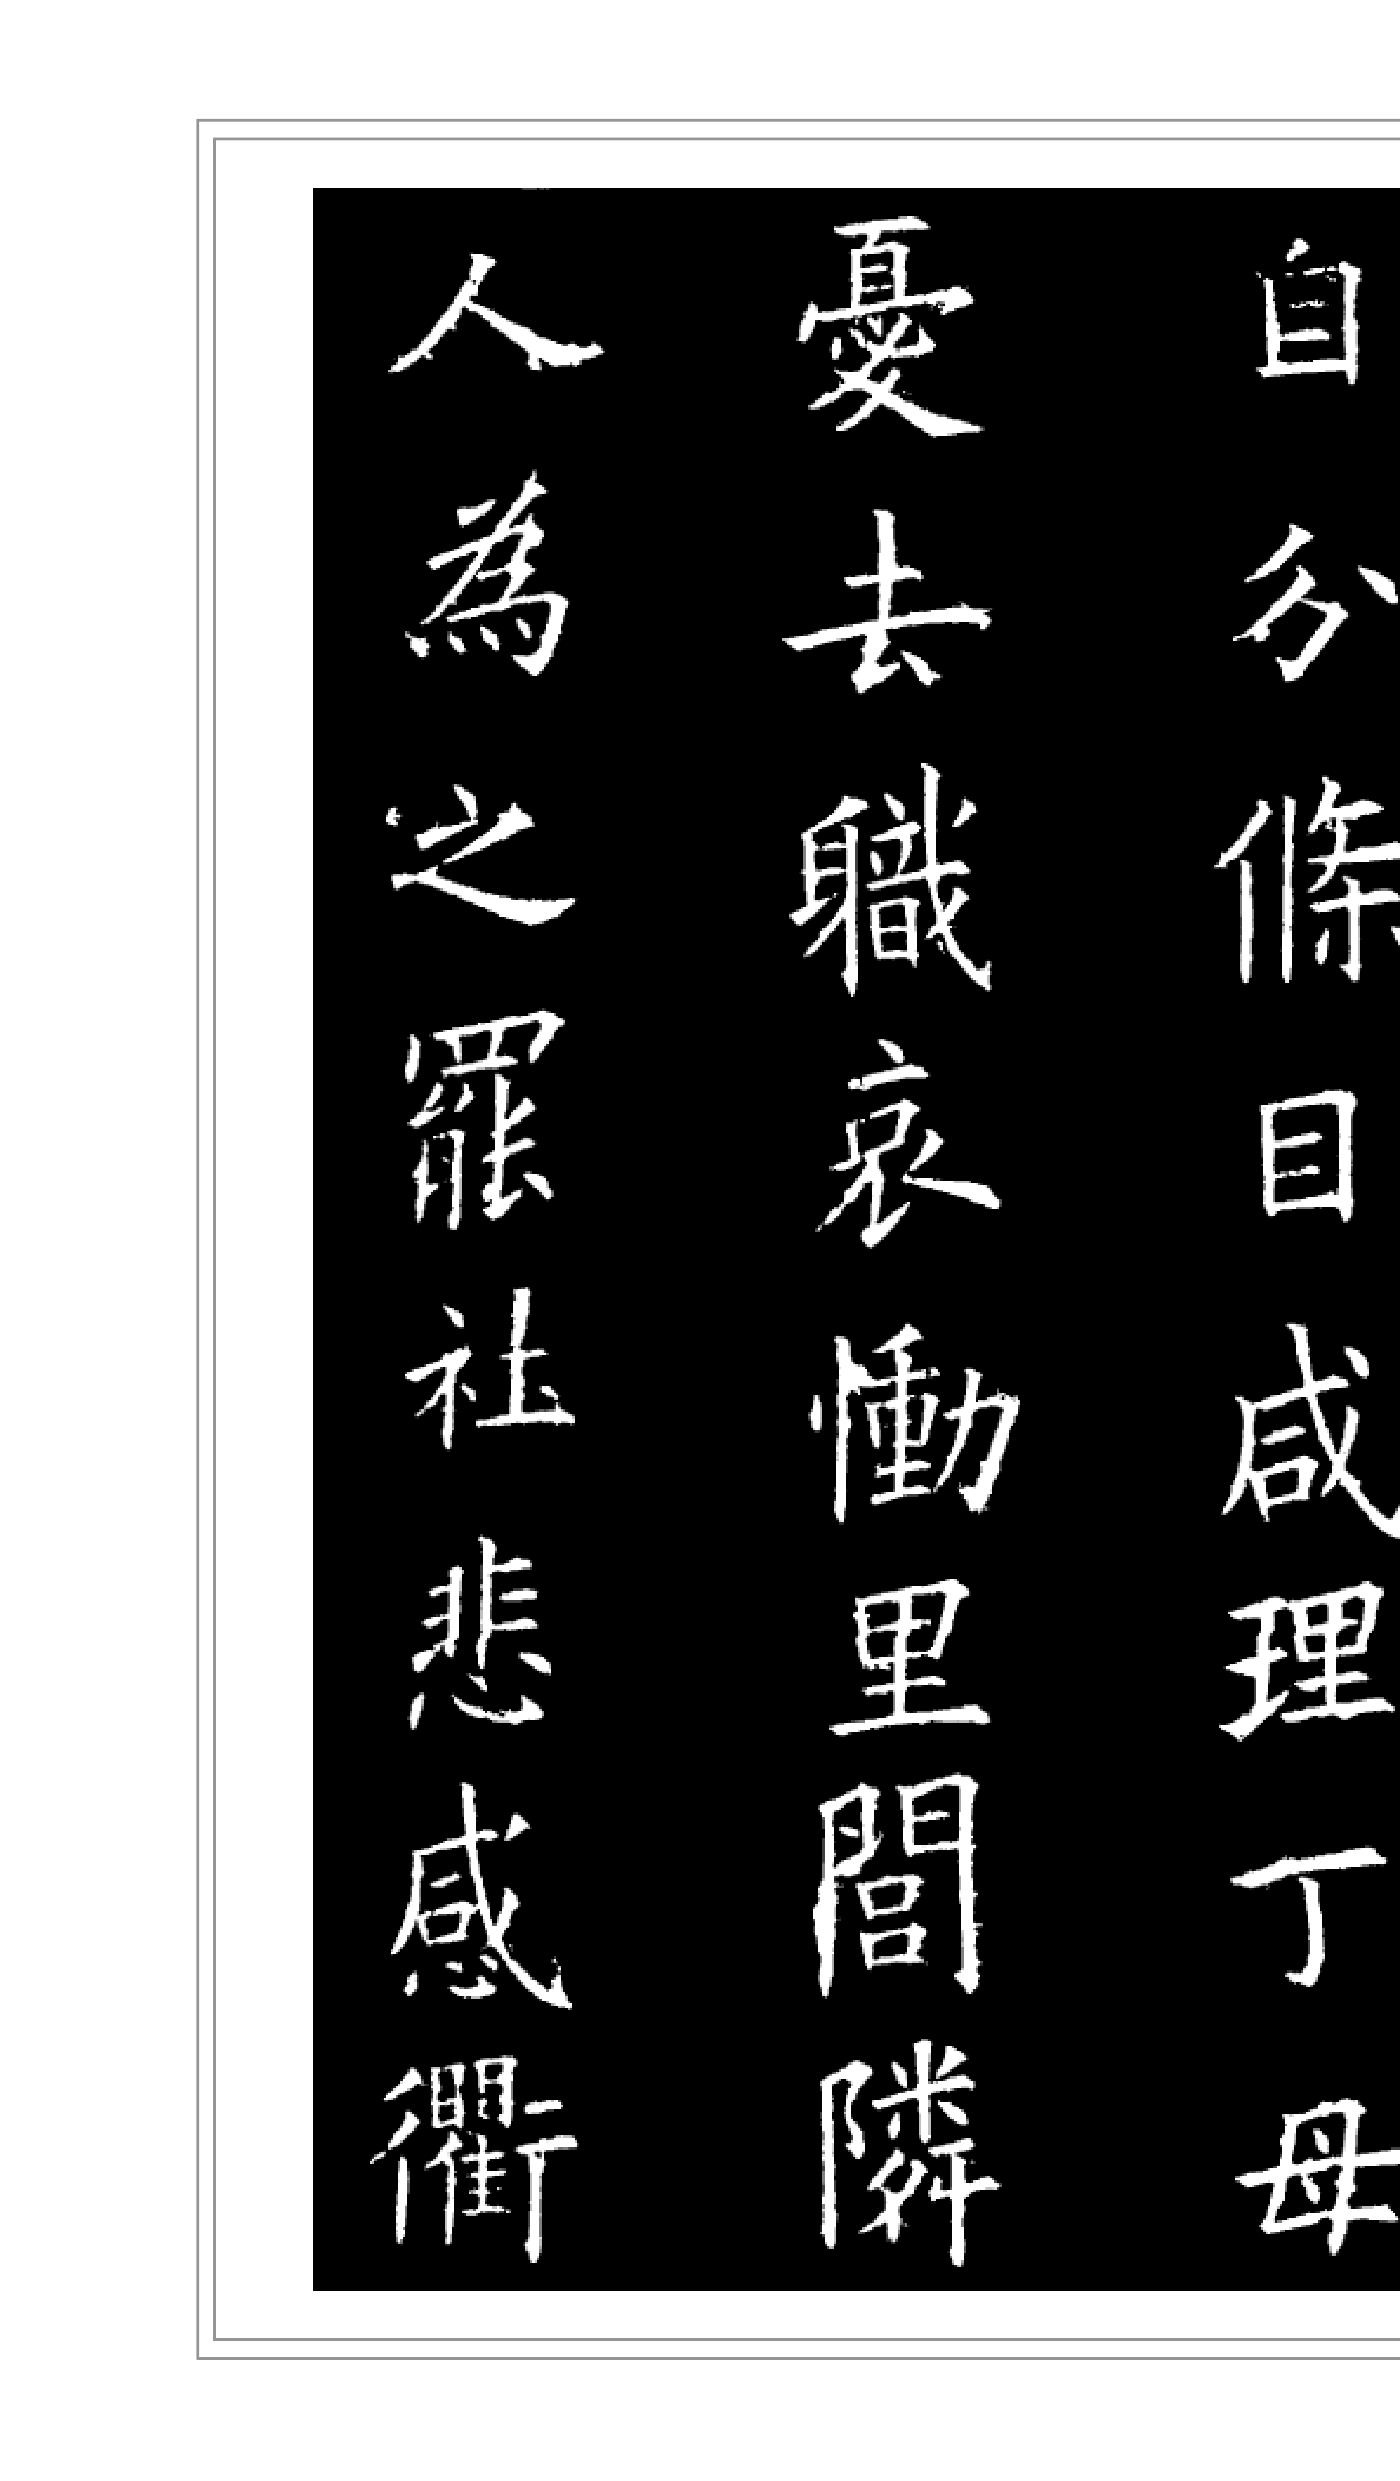 自分條目咸理丁母
憂去職哀慟里閭隣
人為之罷社悲感衢